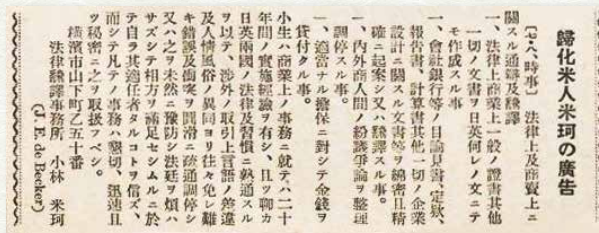 歸化米人米珂の廣告
〔七、八、時事〕　法律上及商賣上ニ
關スル通辯及飜譯
一、法律上商業上一般ノ證書其他
一切ノ文書ヲ日英何レノ文ニテ
モ作成スル事
一、會社銀行等ノ目論見書、定欵、
報告書、計算書其他一切ノ企業
設計ニ關スル文書等ヲ綿密且精
確ニ起案シ又ハ飜譯スル事。
一、內外商人間ノ紛議爭論ヲ整理
調停スル事。
一、適當ナル擔保ニ對シテ金錢ヲ
貸付タル事。
小生ハ商業上ノ事務ニ就テハ二十
年間ノ實施經驗ヲ有シ、且ツ聊カ
日英兩國ノ法律及習慣ニ熟通スル
ヲ以テ、涉外ノ取引上言語ノ差違
及人情風俗ノ異同ヨリ往々免レ難
キ錯誤及衝突ヲ圓滑ニ疏通調停シ
又ハ之ヲ未然ニ豫防シ法廷ヲ煩ハ
サズシテ相方ヲ滿足セシムルニ於
テ自ラ其適任者タルコトヲ信ズ、
而シテ凡テノ事務ハ懇切、迅速且
ツ秘密ニ之ヲ取扱フベシ。
橫濱市山下町乙五十番
法律飜譯事務所　小林　米珂
(J. E. de Becker)